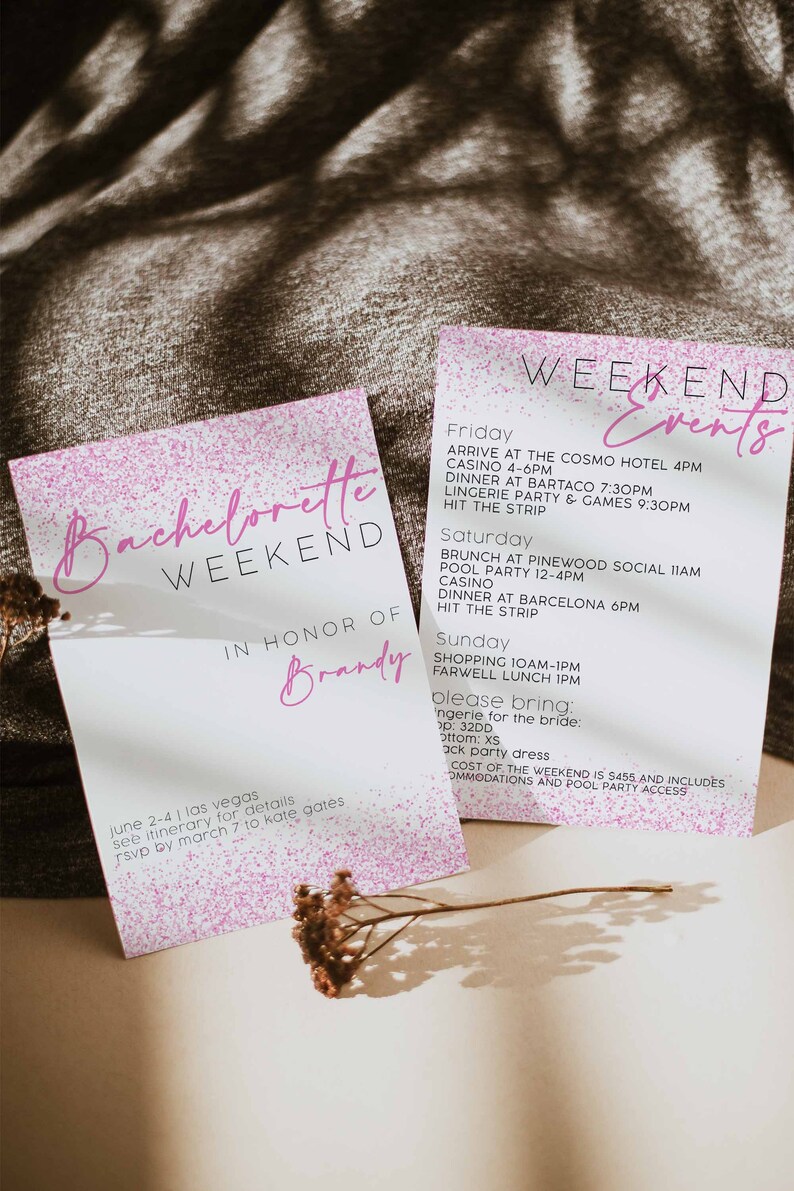 Bachelorette
WEEKEND
IN HONOR OF
Brandy
june 2-4 | las vegas
see itinerary for details
rsvp by march 7 to kate gates
WEEKEND
Events
Friday
ARRIVE AT THE COSMO HOTEL 4PM
CASINO 4-6PM
DINNER AT BARTACO 7:30PM
LINGERIE PARTY & GAMES 9:30PM
HIT THE STRIP
Saturday
BRUNCH AT PINEWOOD SOCIAL 11AM
POOL PARTY 12-4PM
CASINO
DINNER AT BARCELONA 6PM
HIT THE STRIP
Sunday
SHOPPING 10AM-1PM
FARWELL LUNCH 1PM
please bring:
ingerie for the bride:
op: 32DD
ottom: XS
ack party dress
COST OF THE WEEKEND IS $455 AND INCLUDES
OMMODATIONS AND POOL PARTY ACCESS